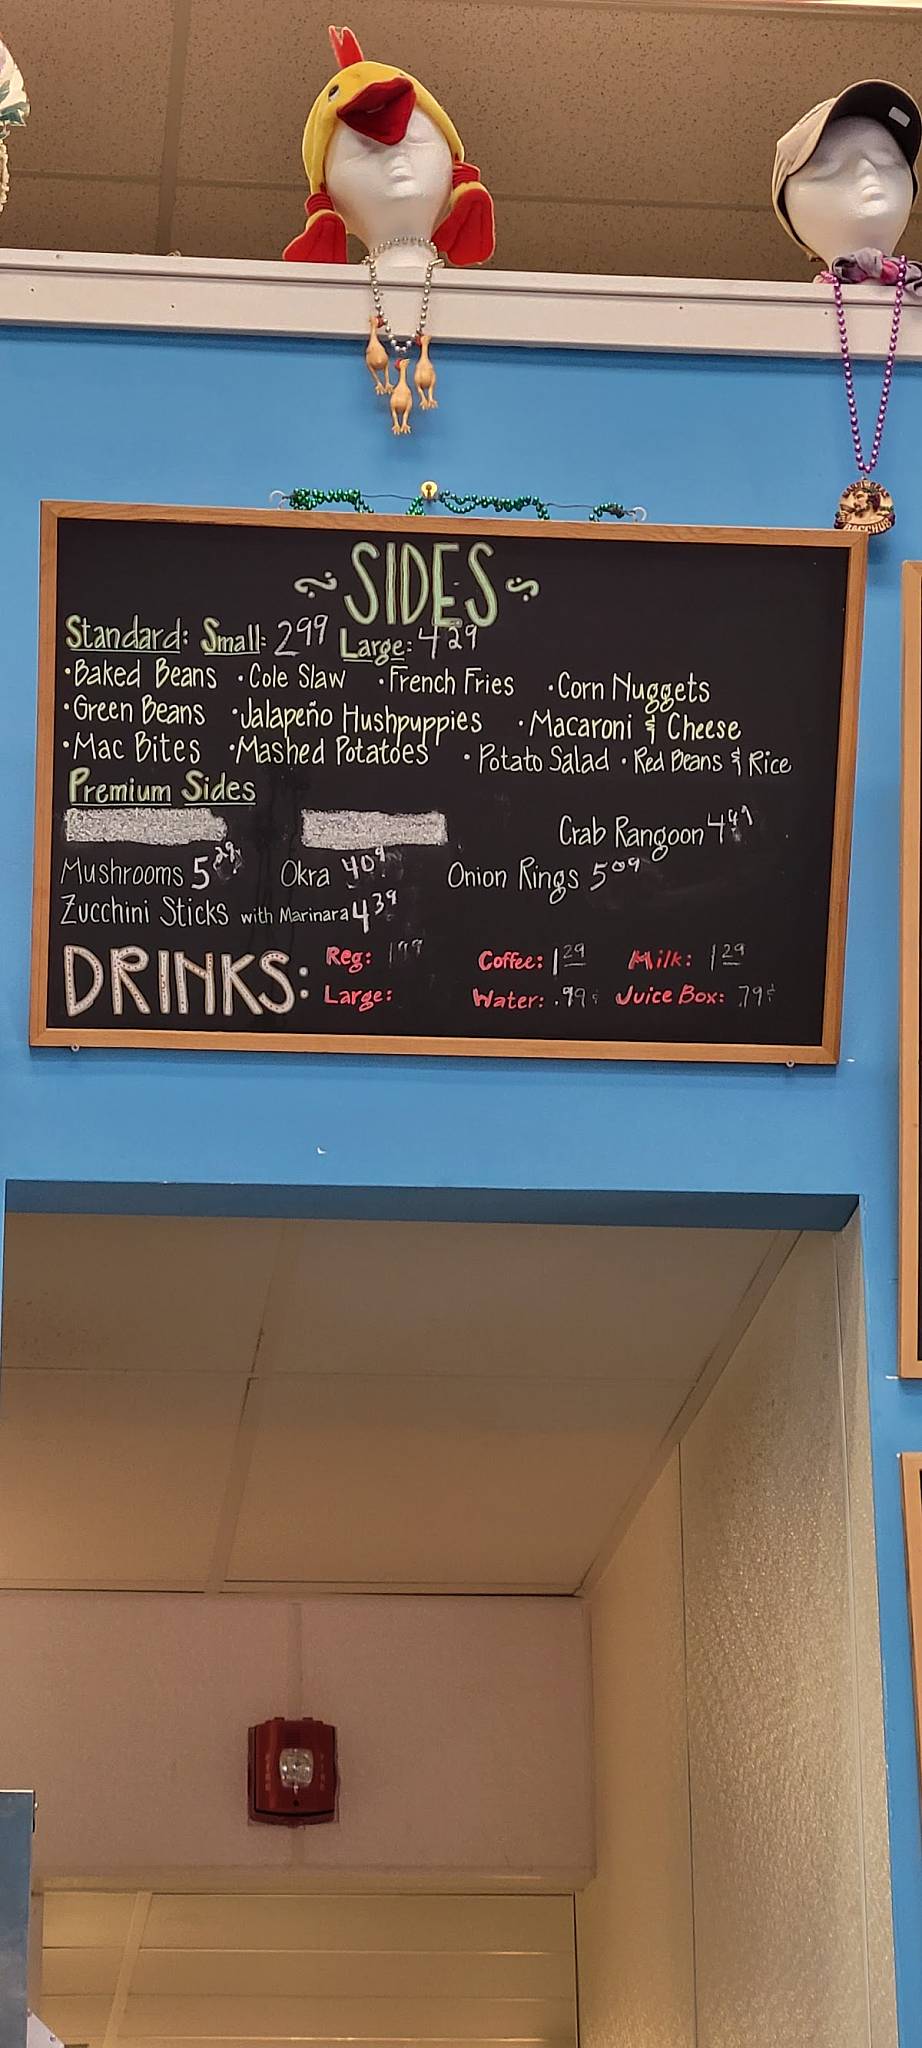 SIDES
Standard: Small: 2.99 Large: 4.29
•Baked Beans •Cole Slaw •French Fries •Corn Nuggets
•Green Beans •Jalapeño Hushpuppies •Macaroni & Cheese
•Mac Bites •Mashed Potatoes •Potato Salad •Red Beans & Rice
Premium Sides
Crab Rangoon
Mushrooms 5.29 Okra 4.09 Onion Rings 5.09
Zucchini Sticks with Marinara 4.39
DRINKS:
Reg: 1.99 Coffee: 1.29 Milk: 1.29
Large: Water: .99¢ Juice Box: .79¢
BACCHUS